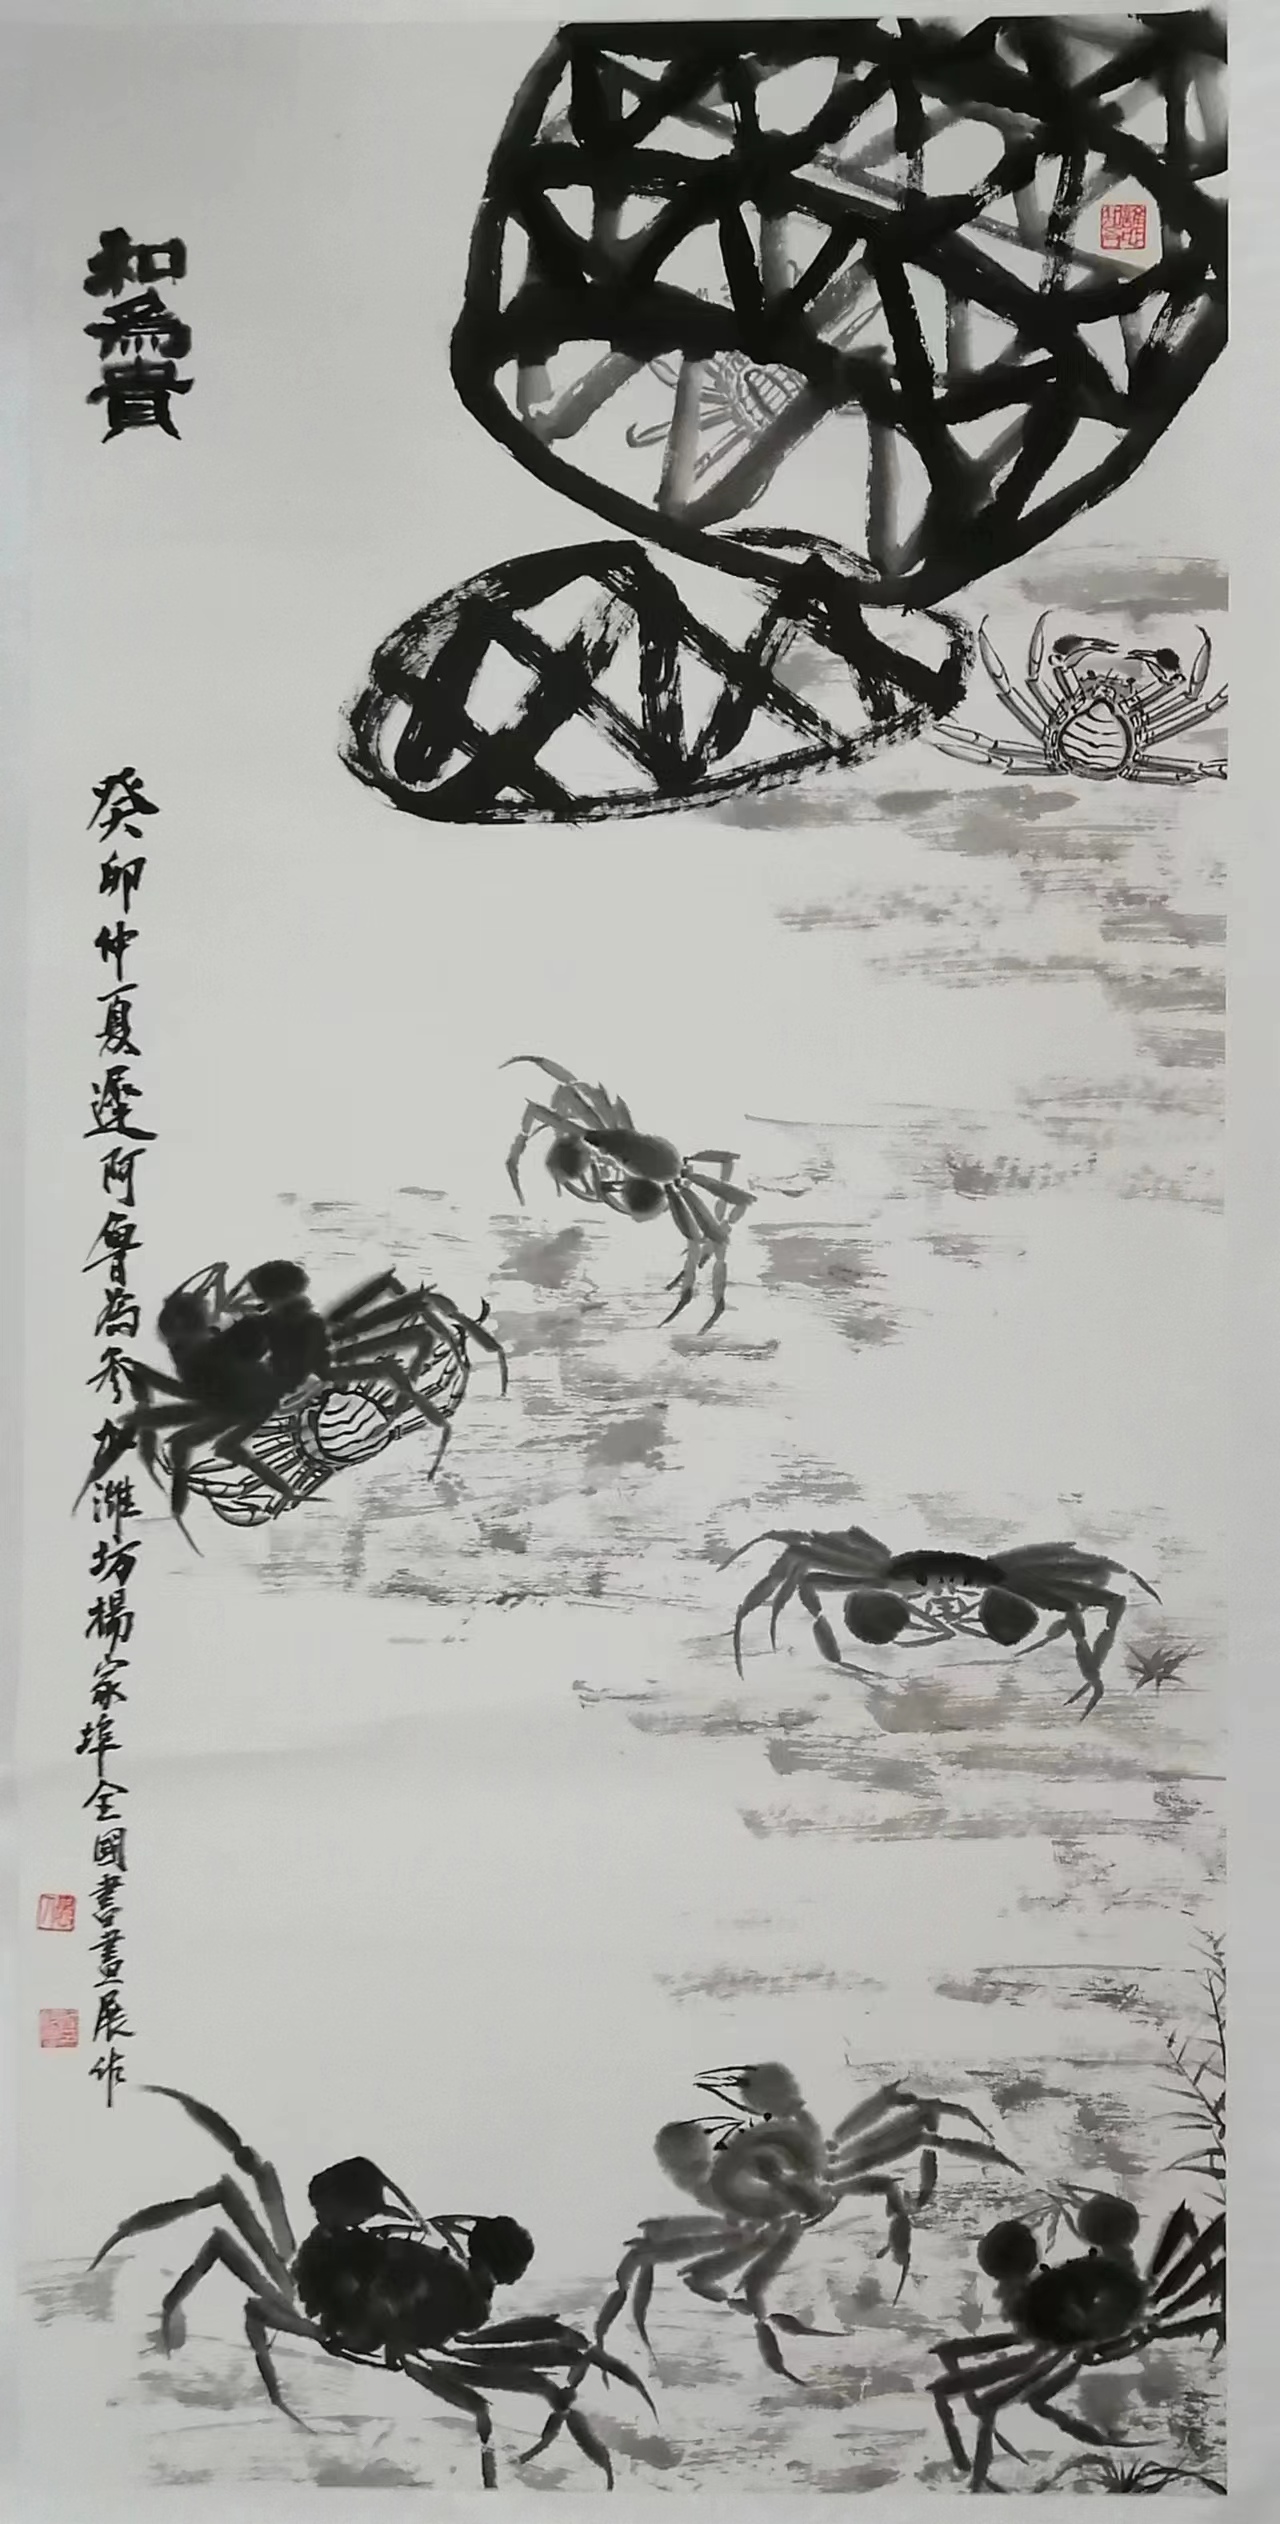 和為貴
癸卯仲夏遲阿魯為參加濰坊楊家埠全國書畫展作